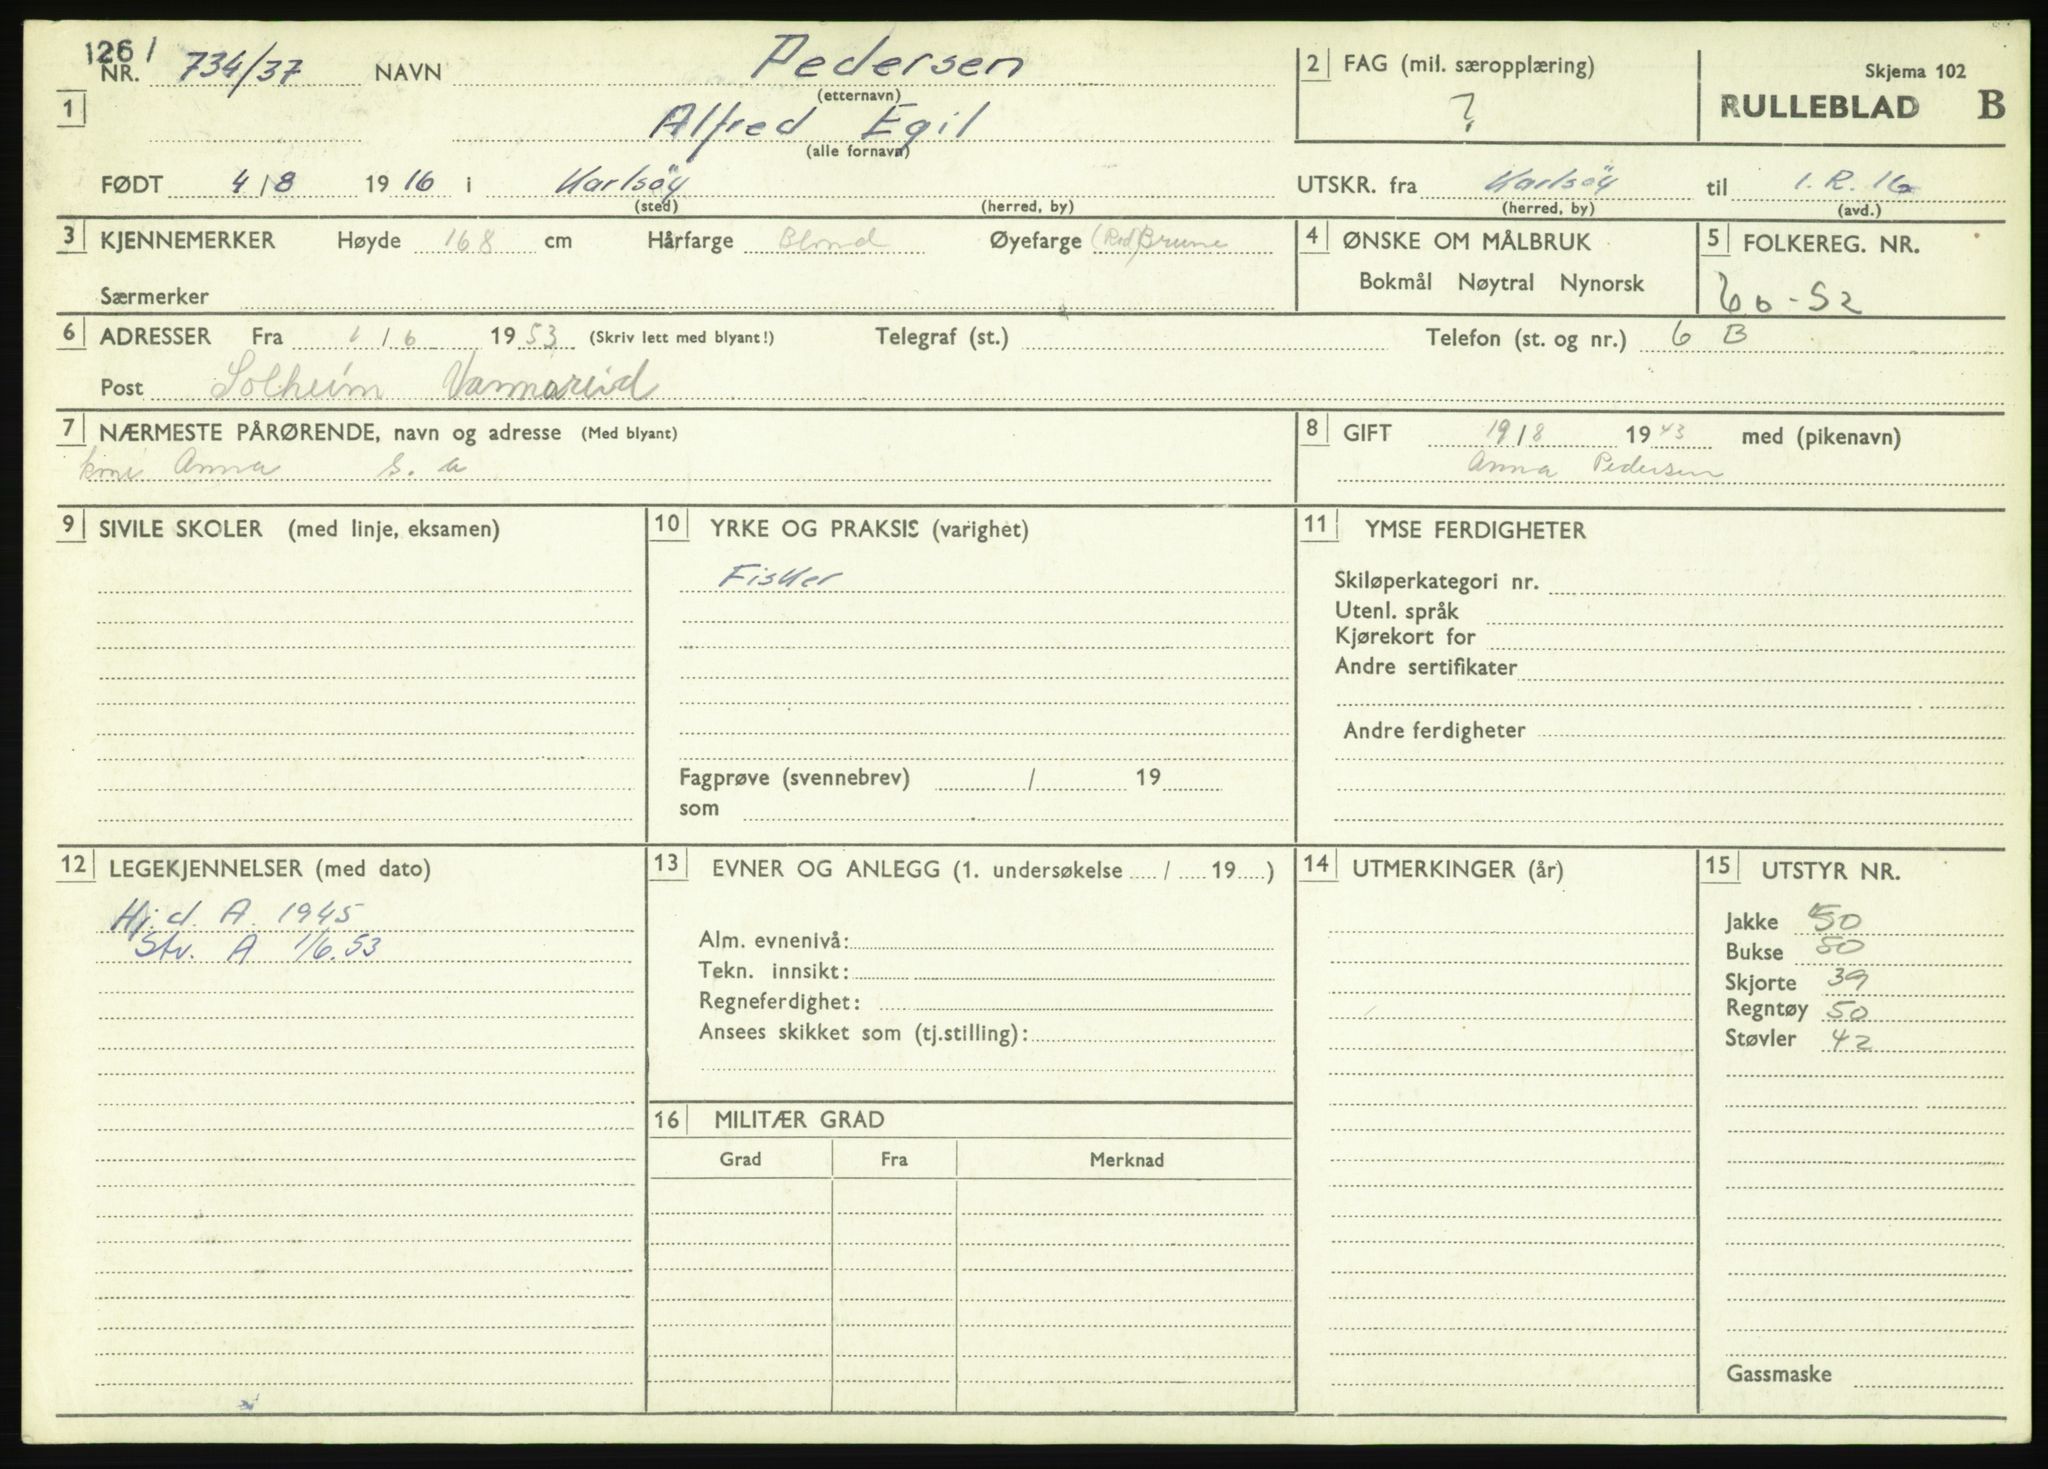 1261
NR. 734/37 NAVN Pedersen
(etternavn)
1 Alfred Egil
(alle fornavn)
2 FAG (mil. særopplæring)
?
Skjema 102
RULLEBLAD B
FØDT 4/8 1916 i Karlsöy
(sted) (herred, by)
UTSKR. fra Karlsöy til I.R.16
(herred, by) (avd.)
3 KJENNEMERKER Høyde 168 cm Hårfarge Blond Øyefarge (Rød) Brune
Særmerker
4 ØNSKE OM MÅLBRUK
Bokmål Nøytral Nynorsk
5 FOLKEREG. NR.
60-52
6 ADRESSER Fra 1/6 1953 (Skriv lett med blyant!) Telegraf (st.) Telefon (st. og nr.) 6 B
Post Solheim Vannareid
7 NÆRMESTE PÅRØRENDE, navn og adresse (Med blyant)
kone Anna s. a
8 GIFT 19/8 1943 med (pikenavn)
Anna Pedersen
9 SIVILE SKOLER (med linje, eksamen)
10 YRKE OG PRAKSIS (varighet)
Fisker
Fagprøve (svennebrev) / 19
som
11 YMSE FERDIGHETER
Skiløperkategori nr.
Utenl. språk
Kjørekort for
Andre sertifikater
Andre ferdigheter
12 LEGEKJENNELSER (med dato)
Hj.d. A. 1945
Stv. A 1/6.53
13 EVNER OG ANLEGG (1. undersøkelse / 19 )
Alm. evnenivå:
Tekn. innsikt:
Regneferdighet:
Ansees skikket som (tj.stilling):
14 UTMERKINGER (år)
15 UTSTYR NR.
Jakke 50
Bukse 50
Skjorte 39
Regntøy 50
Støvler 42
Gassmaske
16 MILITÆR GRAD
Grad Fra Merknad